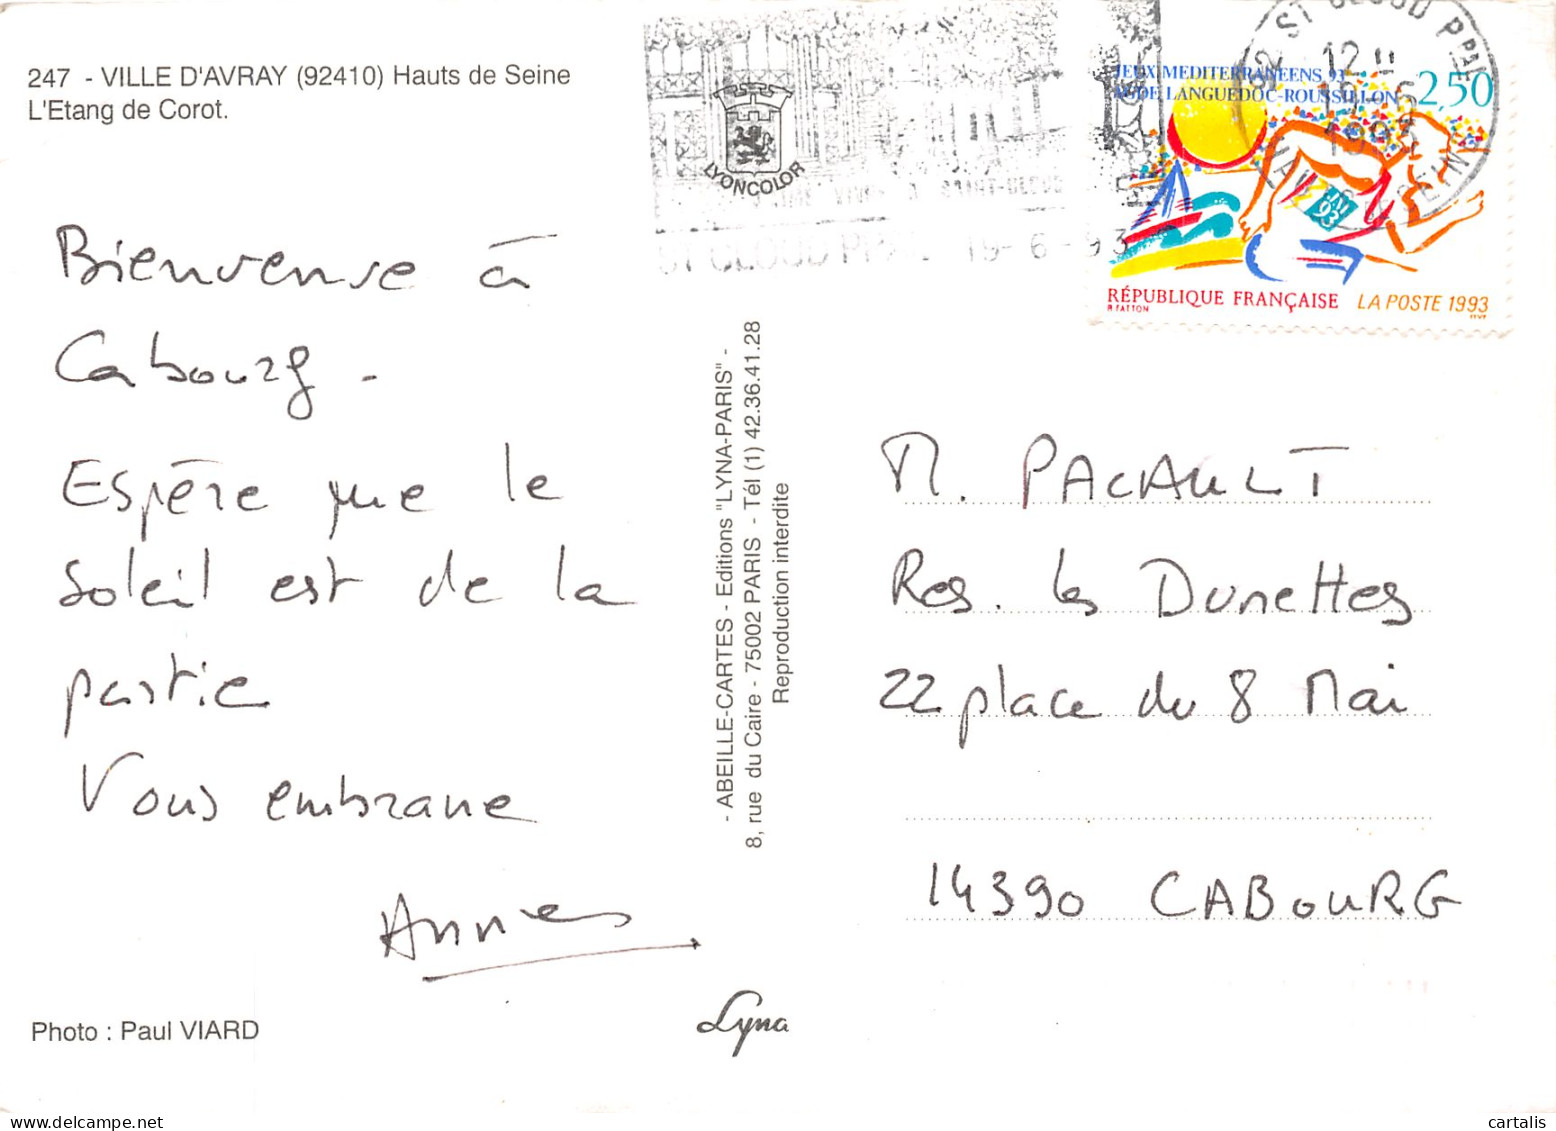 247 - VILLE D'AVRAY (92410) Hauts de Seine
L'Etang de Corot.
LYONCOLOR
ST CLOUD PPAL 19-6-93
92 ST CLOUD PPAL
1993
JEUX MEDITERRANEENS 93
LANGUEDOC-ROUSSILLON
2,50
93
RÉPUBLIQUE FRANÇAISE LA POSTE 1993
R FATTON
Bienvenue à
Cabourg -
Espère que le
soleil est de la
partie
Vous embrasse
- ABEILLE-CARTES - Editions "LYNA-PARIS" -
8, rue du Caire - 75002 PARIS - Tél (1) 42.36.41.28
Reproduction interdite
M. PACAULT
Res. les Dunettes
22 place du 8 Mai
14390 CABOURG
Photo : Paul VIARD
Lyna
cartalis